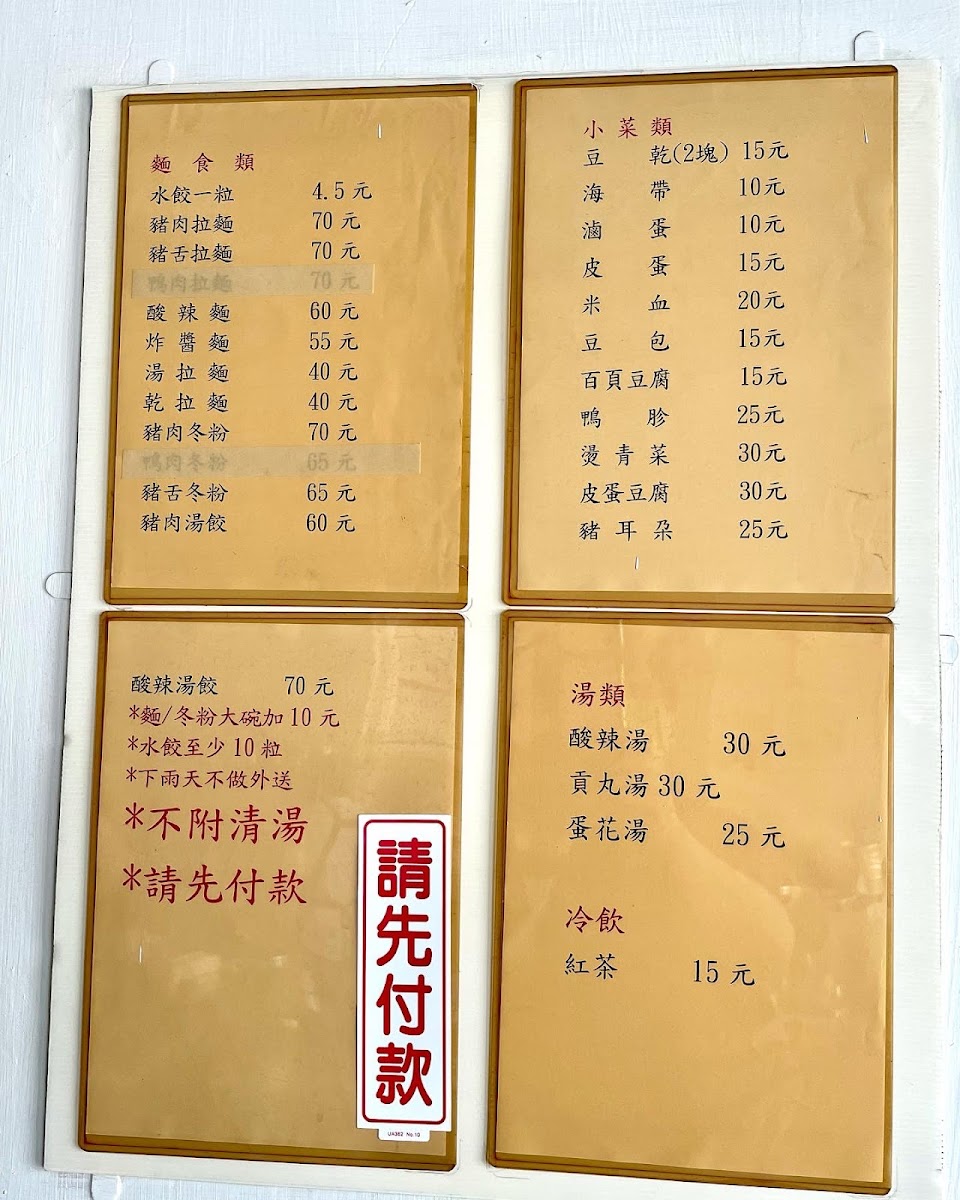 麵食類
水餃一粒 4.5元
豬肉拉麵 70元
豬舌拉麵 70元
鴨肉拉麵 70元
酸辣麵 60元
炸醬麵 55元
湯拉麵 40元
乾拉麵 40元
豬肉冬粉 70元
鴨肉冬粉 65元
豬舌冬粉 65元
豬肉湯餃 60元
小菜類
豆乾(2塊) 15元
海帶 10元
滷蛋 10元
皮蛋 15元
米血 20元
豆包 15元
百頁豆腐 15元
鴨胗 25元
燙青菜 30元
皮蛋豆腐 30元
豬耳朶 25元
酸辣湯餃 70元
*麵/冬粉大碗加10元
*水餃至少10粒
*下雨天不做外送
*不附清湯
*請先付款
請先付款
UA362 No.10
湯類
酸辣湯 30元
貢丸湯30元
蛋花湯 25元
冷飲
紅茶 15元